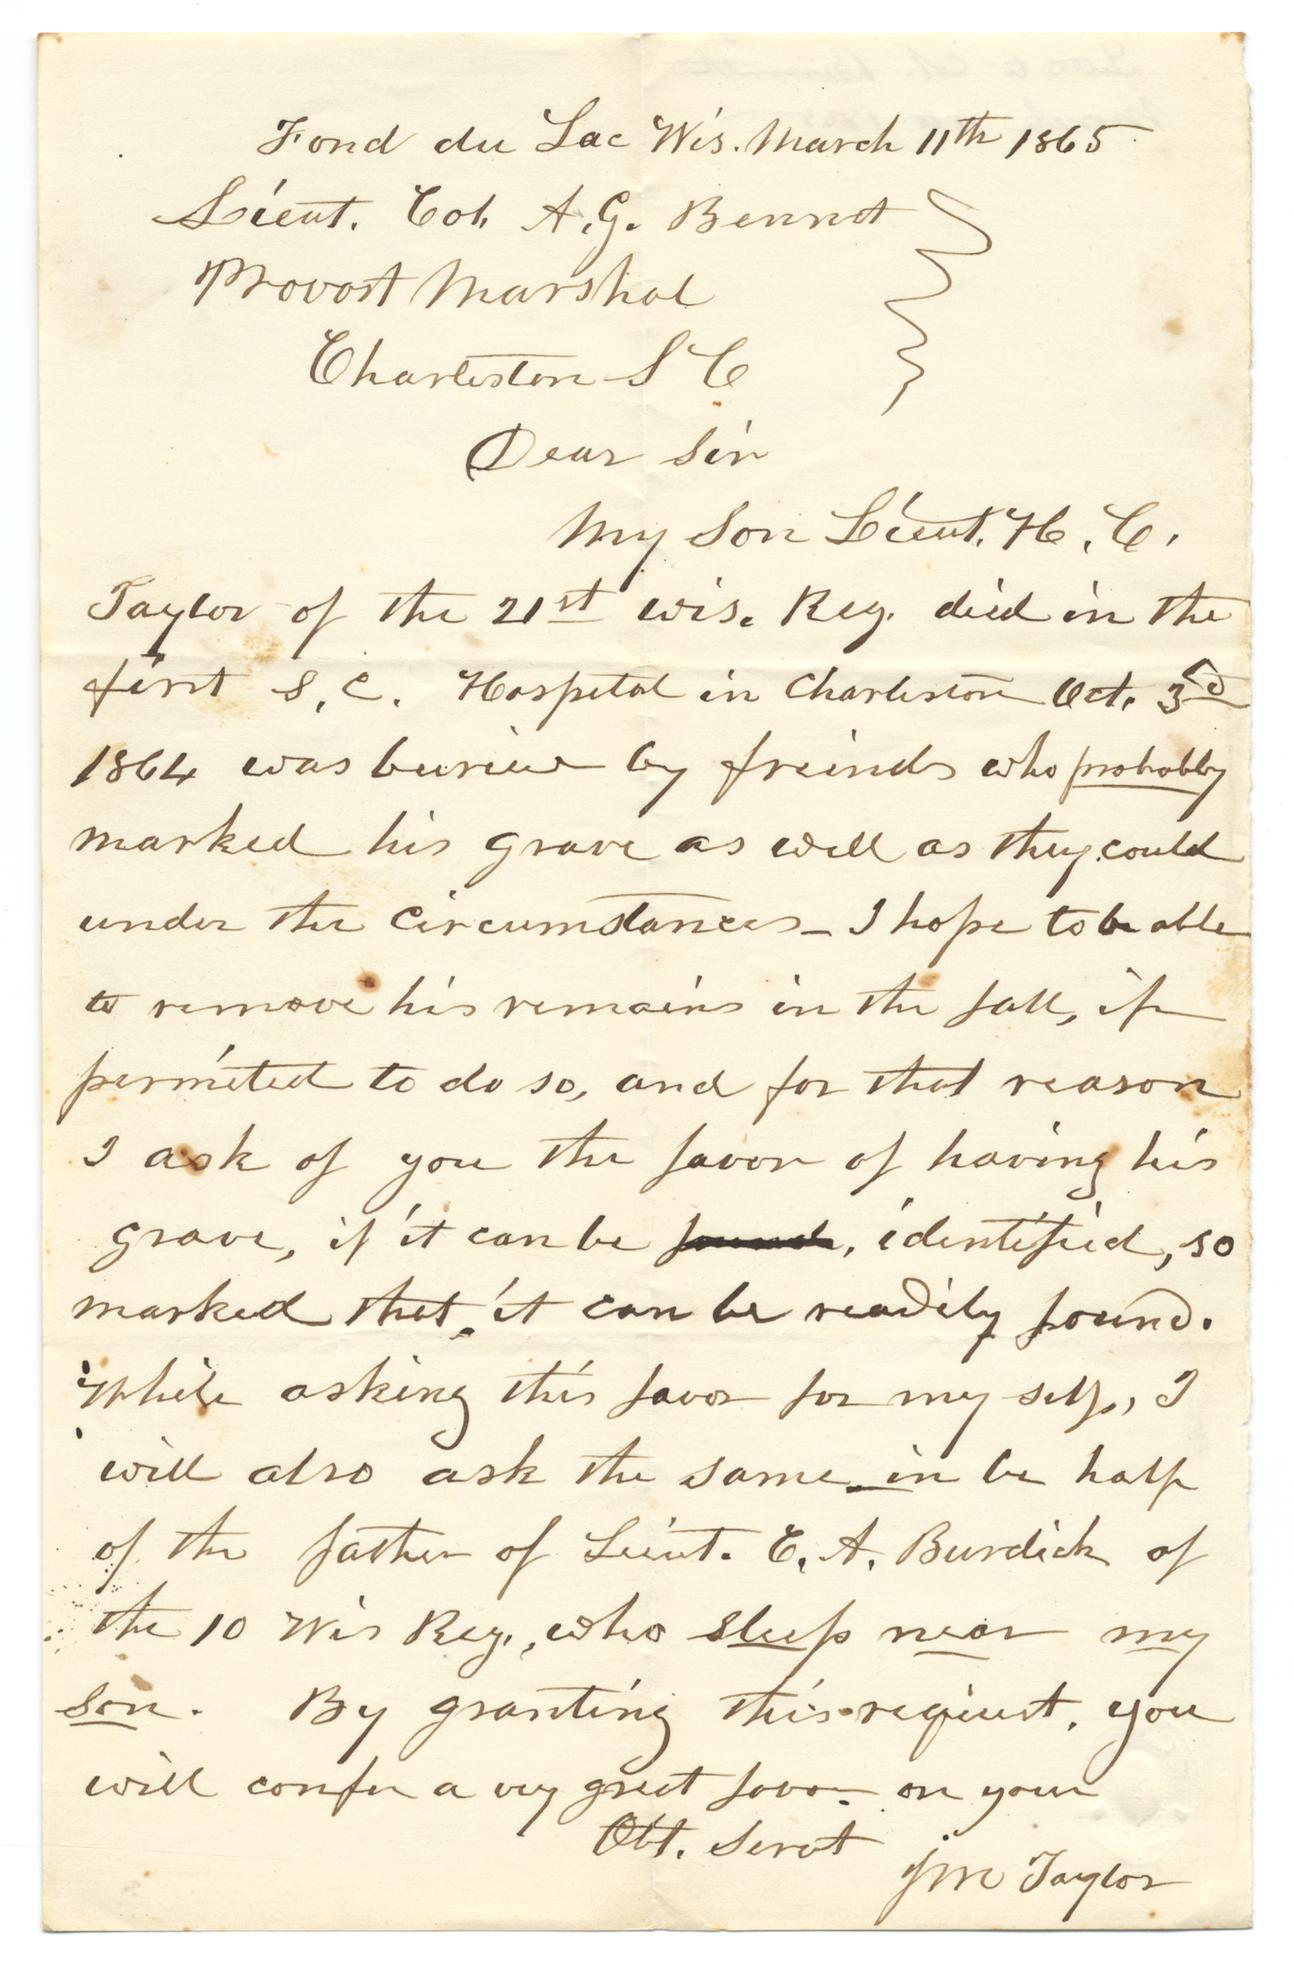 Fond du Lac Wis. March 11th 1865
Lieut. Col. A. G. Bennet
Provost Marshal
Charleston S C
Dear Sir
My Son Lieut. H. C.
Taylor of the 21st Wis. Reg. died in the
first S. C. Hospital in Charleston Oct. 3d
1864 was buried by freinds who probably
marked his grave as well as they could
under the circumstances - I hope to be able
to remove his remains in the fall, if
permited to do so, and for that reason
I ask of you the favor of having his
grave, if it can be found, identified, so
marked that it can be readily found.
While asking this favor for my self, I
will also ask the same in be half
of the father of Lieut. E. A. Burdick of
the 10 Wis Reg., who sleep near my
son. By granting this request, you
will confer a very great favor on your
Obt. Servt
J M Taylor